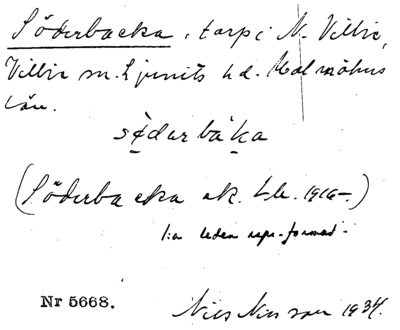 Söderbacka, torp i N. Villie,
Villie sn. Ljunits hd. Malmöhus
län.
sǿdarbáka
(Söderbacka ek. Lb. 1916–.)
1:a leden repr. formad.
Nr 5668. Nils Nilsson 1934.